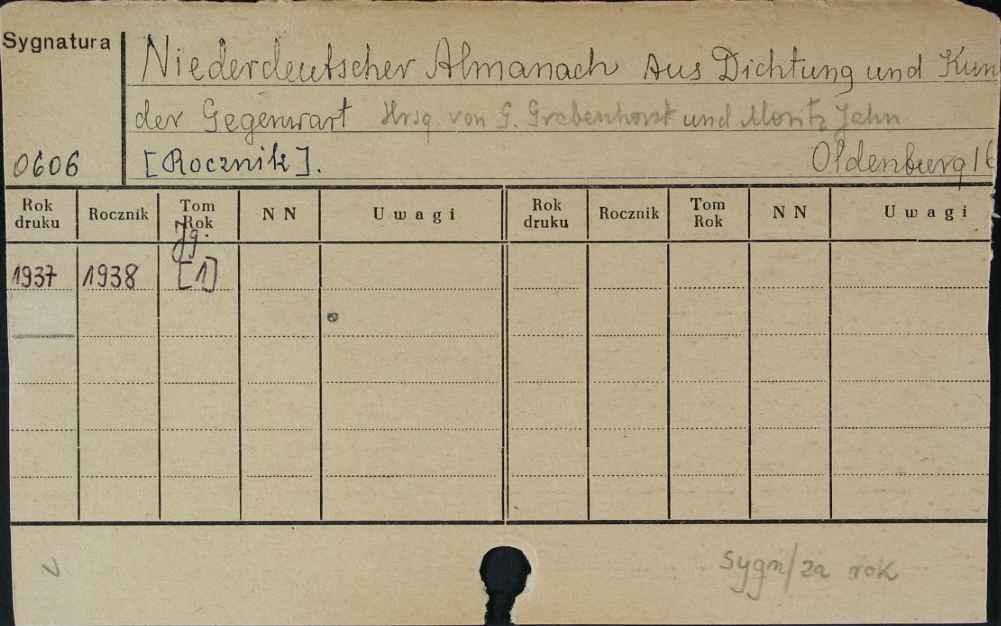 Sygnatura
Niederdeutscher Almanach Aus Dichtung und Kun
der Gegenwart Hrsg. von G. Grabenhorst und Moritz Jahn
0606 [Rocznik]. Oldenburg
Rok druku Rocznik Tom Rok N N Uwagi Rok druku Rocznik Tom Rok N N Uwagi
Jg.
1937 1938 [1]
sygn/za rok